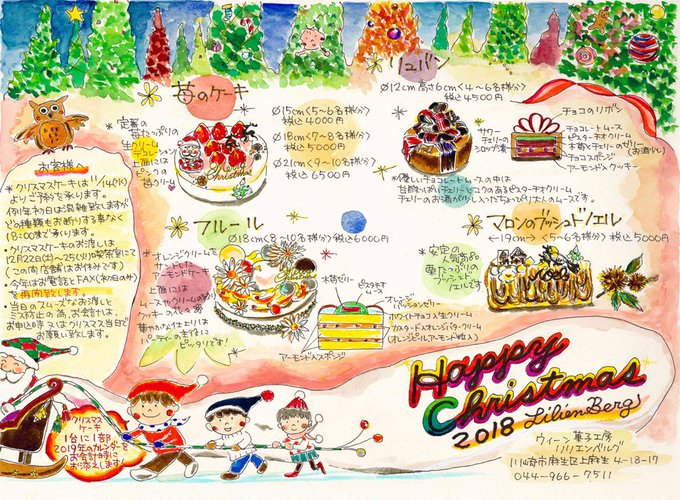 苺のケーキ
*定番の
苺たっぷりの
生クリーム
デコレーション
上面には
ピンクの
苺クリーム
Ø15cm<5〜6名様分>
税込4000円
Ø18cm<7〜8名様分>
税込5000円
Ø21cm<9〜10名様分>
税込6500円
リュバン
Ø12cm 高さ6cm<4〜6名様分>
税込4500円
サワー
チェリーの
シロップ漬
チョコのリボン
チョコレートムース
ピスタチオクリーム
木苺とチェリーのゼリー
(お酒少し)
チョコスポンジ
アーモンド入クッキー
*優しいチョコレートムースの中は
甘酸っぱいチェリーとコクのあるピスタチオクリーム
チェリーのお酒が少し入ったちょっぴり大人のムースです。
お客様へ
*クリスマスケーキは11/14(水)
よりご予約を承ります。
例年初日は混雑致しますが
どの種類もお断りする事なく
18:00まで承ります。
*クリスマスケーキのお渡しは
12月22日(土)〜25(火)喫茶室にて
(この間店舗はお休みです)
*今年はお電話とFAX(初日のみ)
再開致します。
*当日のスムーズなお渡しと
ミス防止の為、お会計は、
お申し込み時又はクリスマス当日で
お願い致します。
フルール
Ø18cm<8〜10名様分>税込6000円
*オレンジクリームを
サンドした
アーモンドケーキ
上面には
ムースやクリームのお花
クッキーのお花
華やかな仕上りは
パーティーの主役に
ピッタリです!
木苺ゼリー
ピスタチオ
ムース
オレンジ
パッションゼリー
ホワイトチョコ入生クリーム
カスタード入オレンジバタークリーム
(オレンジピール アーモンド粒入)
アーモンド入スポンジ
マロンのブッシュドノエル
←19cm→<5〜6名様分>税込5000円
*安定の
人気度80
栗たっぷりの
ブッシュド
ノエルです
クリスマス
ケーキ
1台に1部
2019年のカレンダーを
お会計時に
お添えします!
Happy
Christmas
2018 Lilien Berg
ウィーン菓子工房
リリエンベルグ
川崎市麻生区上麻生4-18-17
044-966-7511